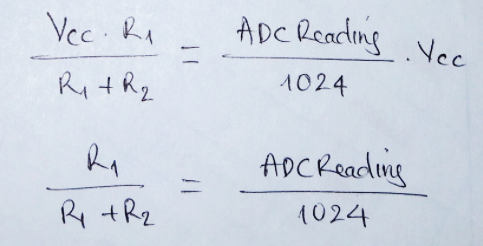 Vcc · R1 / R1 + R2 = ADC Reading / 1024 · Vcc
R1 / R1 + R2 = ADC Reading / 1024